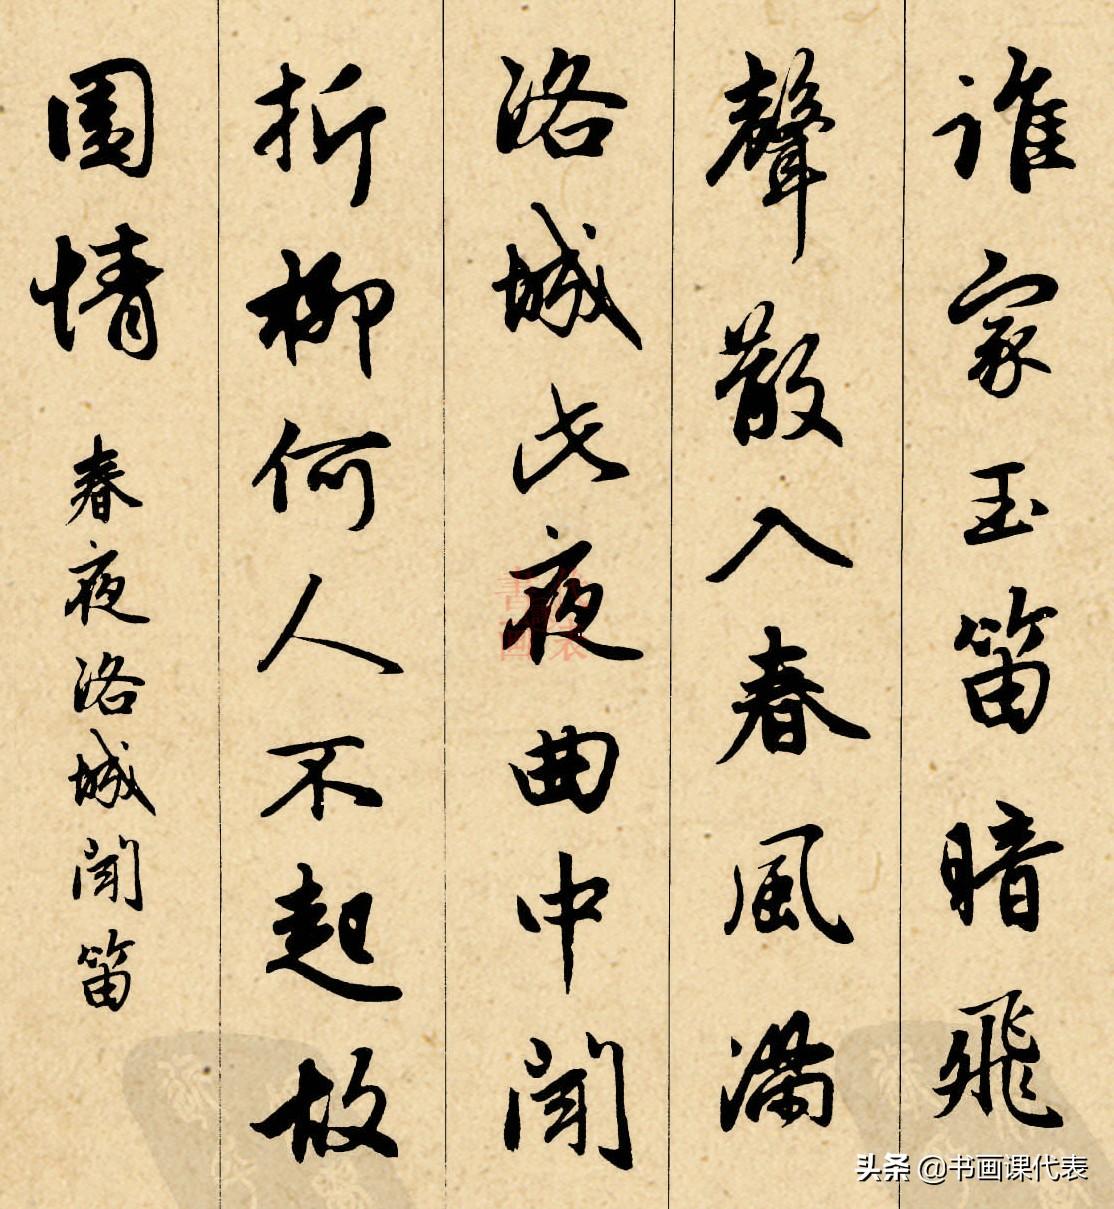 誰家玉笛暗飛
聲散入春風滿
洛城此夜曲中聞
折柳何人不起故
園情 春夜洛城聞笛
头条 @书画课代表